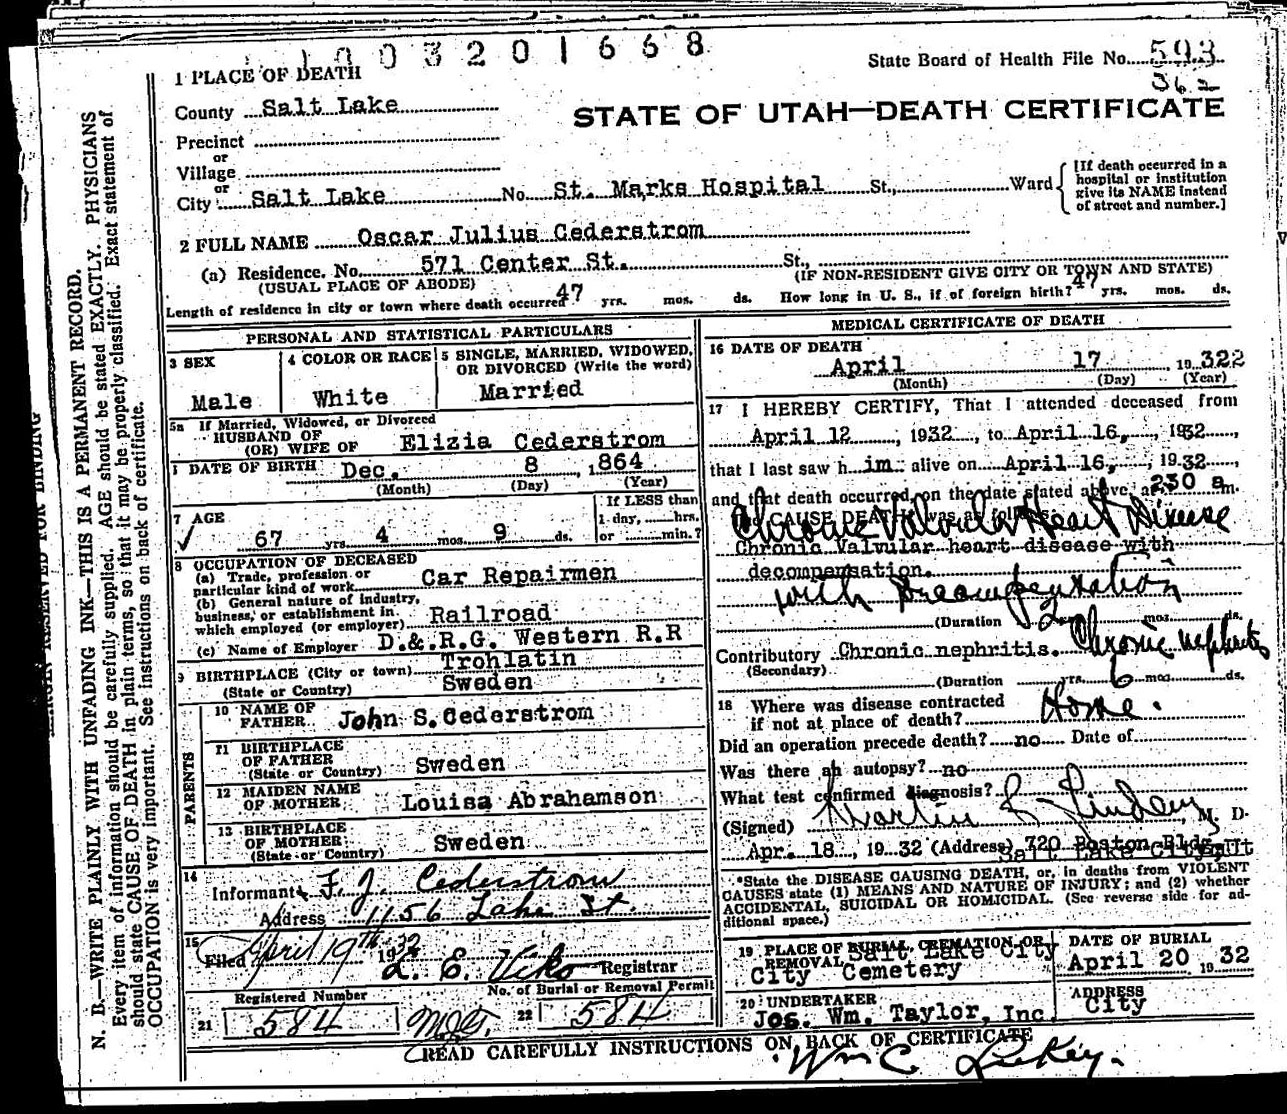 1003201668
State Board of Health File No. 593
362
STATE OF UTAH—DEATH CERTIFICATE
1 PLACE OF DEATH
County Salt Lake
Precinct
or
Village
or
City Salt Lake No. St. Marks Hospital St., Ward
[If death occurred in a hospital or institution give its NAME instead of street and number.]
2 FULL NAME Oscar Julius Cederstrom
(a) Residence. No. 571 Center St. St.,
(USUAL PLACE OF ABODE) (IF NON-RESIDENT GIVE CITY OR TOWN AND STATE)
Length of residence in city or town where death occurred 47 yrs. mos. ds. How long in U. S., if of foreign birth? 47 yrs. mos. ds.
PERSONAL AND STATISTICAL PARTICULARS
3 SEX
Male
4 COLOR OR RACE
White
5 SINGLE, MARRIED, WIDOWED,
OR DIVORCED (Write the word)
Married
5a If Married, Widowed, or Divorced
HUSBAND OF
(OR) WIFE OF Elizia Cederstrom
DATE OF BIRTH Dec. 8, 1864
(Month) (Day) (Year)
7 AGE
67 yrs. 4 mos. 9 ds.
If LESS than
1 day, hrs.
or min.?
8 OCCUPATION OF DECEASED
(a) Trade, profession or
particular kind of work Car Repairmen
(b) General nature of industry,
business, or establishment in
which employed (or employer) Railroad
(c) Name of Employer D.&.R.G. Western R.R
9 BIRTHPLACE (City or town) Trohlatin
(State or Country) Sweden
PARENTS
10 NAME OF
FATHER John S. Cederstrom
11 BIRTHPLACE
OF FATHER
(State or Country) Sweden
12 MAIDEN NAME
OF MOTHER Louisa Abrahamson
13 BIRTHPLACE
OF MOTHER
(State or Country) Sweden
14
Informant F. J. Cederstrom
Address 1156 Lake St.
15
Filed April 19th 1932 L. E. Viko Registrar
Registered Number
21 584
No. of Burial or Removal Permit
22 584
MEDICAL CERTIFICATE OF DEATH
16 DATE OF DEATH
April 17, 19 322
(Month) (Day) (Year)
17 I HEREBY CERTIFY, That I attended deceased from
April 12, 1932, to April 16, 1932,
that I last saw him alive on April 16, 1932,
and that death occurred, on the date stated above, at 230 a m.
CAUSE DEATH was as follows:
Chronic Valvular Heart Disease
Chronic Valvular heart disease with
decompensation.
with Decompensation
(Duration mos. ds.
Contributory Chronic nephritis. Chronic nephritis
(Secondary)
(Duration yrs. 6 mos. ds.
18 Where was disease contracted
if not at place of death? Home.
Did an operation precede death? no Date of
Was there an autopsy? no
What test confirmed diagnosis?
(Signed) Martin M. D.
Apr. 18, 1932 (Address) 720 Boston Bldg.
Salt Lake City, Ut
*State the DISEASE CAUSING DEATH, or, in deaths from VIOLENT
CAUSES state (1) MEANS AND NATURE OF INJURY; and (2) whether
ACCIDENTAL, SUICIDAL OR HOMICIDAL. (See reverse side for ad-
ditional space.)
19 PLACE OF BURIAL, CREMATION, OR
REMOVAL Salt Lake City
City Cemetery
DATE OF BURIAL
April 20 1932
20 UNDERTAKER
Jos. Wm. Taylor, Inc.
ADDRESS
City
READ CAREFULLY INSTRUCTIONS ON BACK OF CERTIFICATE
Wm C.
MARGIN RESERVED FOR BINDING
N. B.—WRITE PLAINLY WITH UNFADING INK—THIS IS A PERMANENT RECORD.
Every item of information should be carefully supplied. AGE should be stated EXACTLY. PHYSICIANS
should state CAUSE OF DEATH in plain terms, so that it may be properly classified. Exact statement of
OCCUPATION is very important. See instructions on back of certificate.